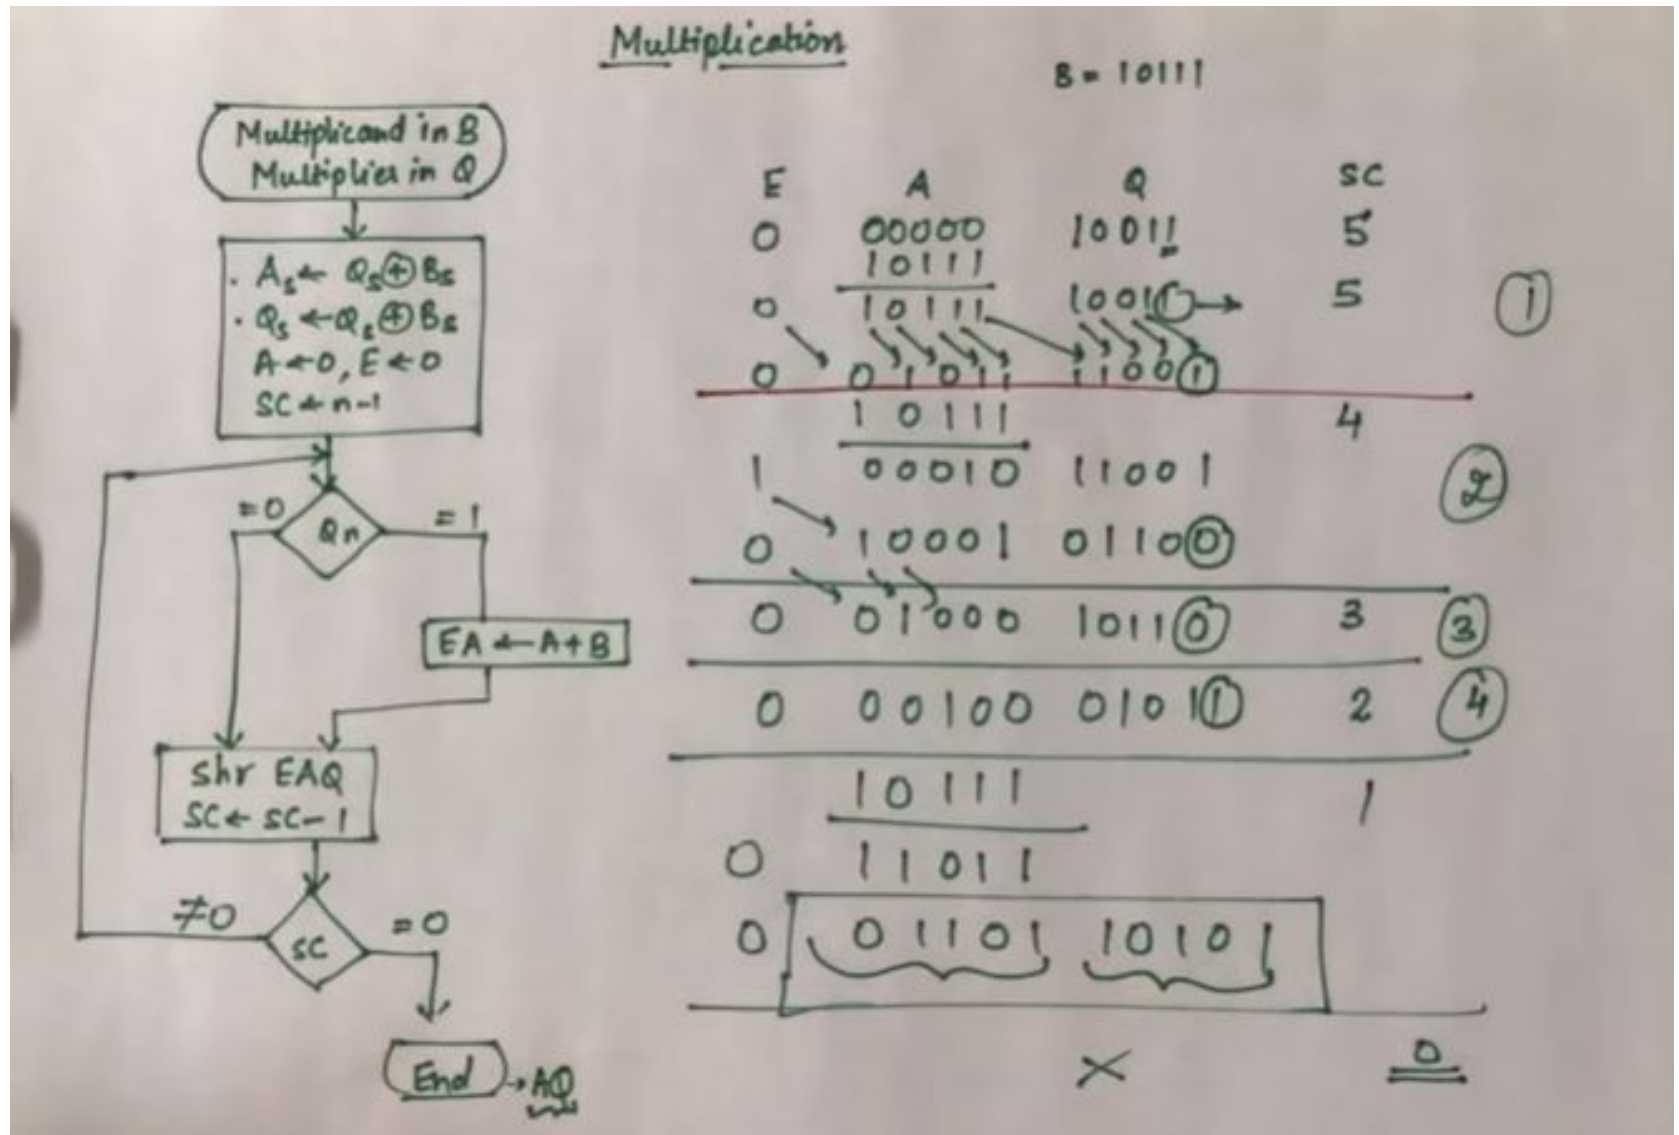 Multiplication
B = 10111
Multiplicand in B
Multiplier in Q
. As ← Qs ⊕ Bs
. Qs ← Qs ⊕ Bs
A ← 0, E ← 0
SC ← n-1
=0 Qn =1
EA ← A+B
Shr EAQ
SC ← SC-1
≠0 SC =0
End → AQ
E A Q SC
0 00000 10011 5
10111
0 10111 10011 → 5 1
0 01011 11001
10111 4
1 00010 11001 2
0 10001 01100
0 01000 10110 3 3
0 00100 01011 2 4
10111 1
0 11011
0 01101 10101
× 0